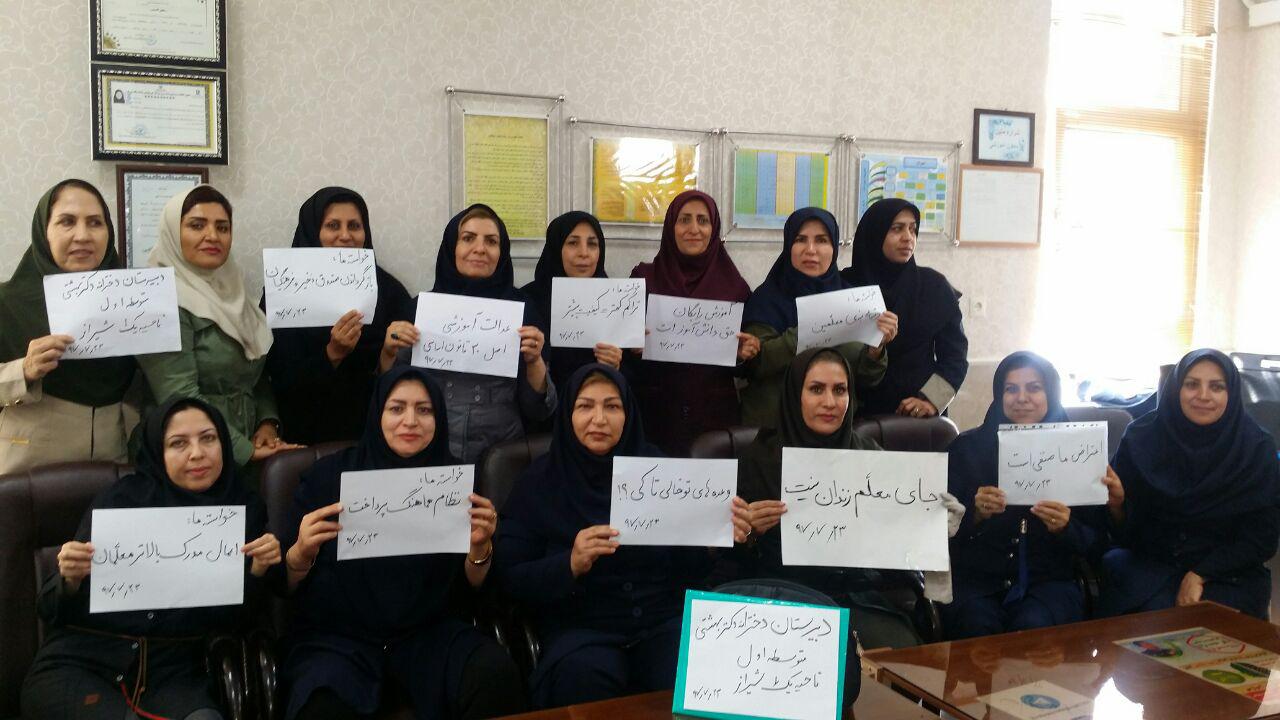 دبیرستان دخترانه دکتر بهشتی
متوسطه اول
ناحیه یک شیراز
۹۷,۷,۲۳
خواسته ما:
بازگرداندن صندوق ذخیره فرهنگیان
۹۷,۷,۲۳
عدالت آموزشی
اصل ۳۰ قانون اساسی
۹۷,۷,۲۳
خواسته ما:
تراکم کمتر = کیفیت بیشتر
۹۷,۷,۲۳
آموزش رایگان
حق دانش آموز است
۹۷,۷,۲۳
خواسته ما:
معلمین
۹۷,۷,۲۳
خواسته ما:
اعمال مدرک بالاتر معلمان
۹۷,۷,۲۳
خواسته ما:
نظام هماهنگ پرداخت
۹۷,۷,۲۳
وعده های توخالی تا کی؟!
۹۷,۷,۲۳
جای معلّم زندان نیست
۹۷,۷,۲۳
اعتراض ما صنفی است
۹۷,۷,۲۳
دبیرستان دخترانه دکتر بهشتی
متوسطه اول
ناحیه یک شیراز
۹۷,۷,۲۳